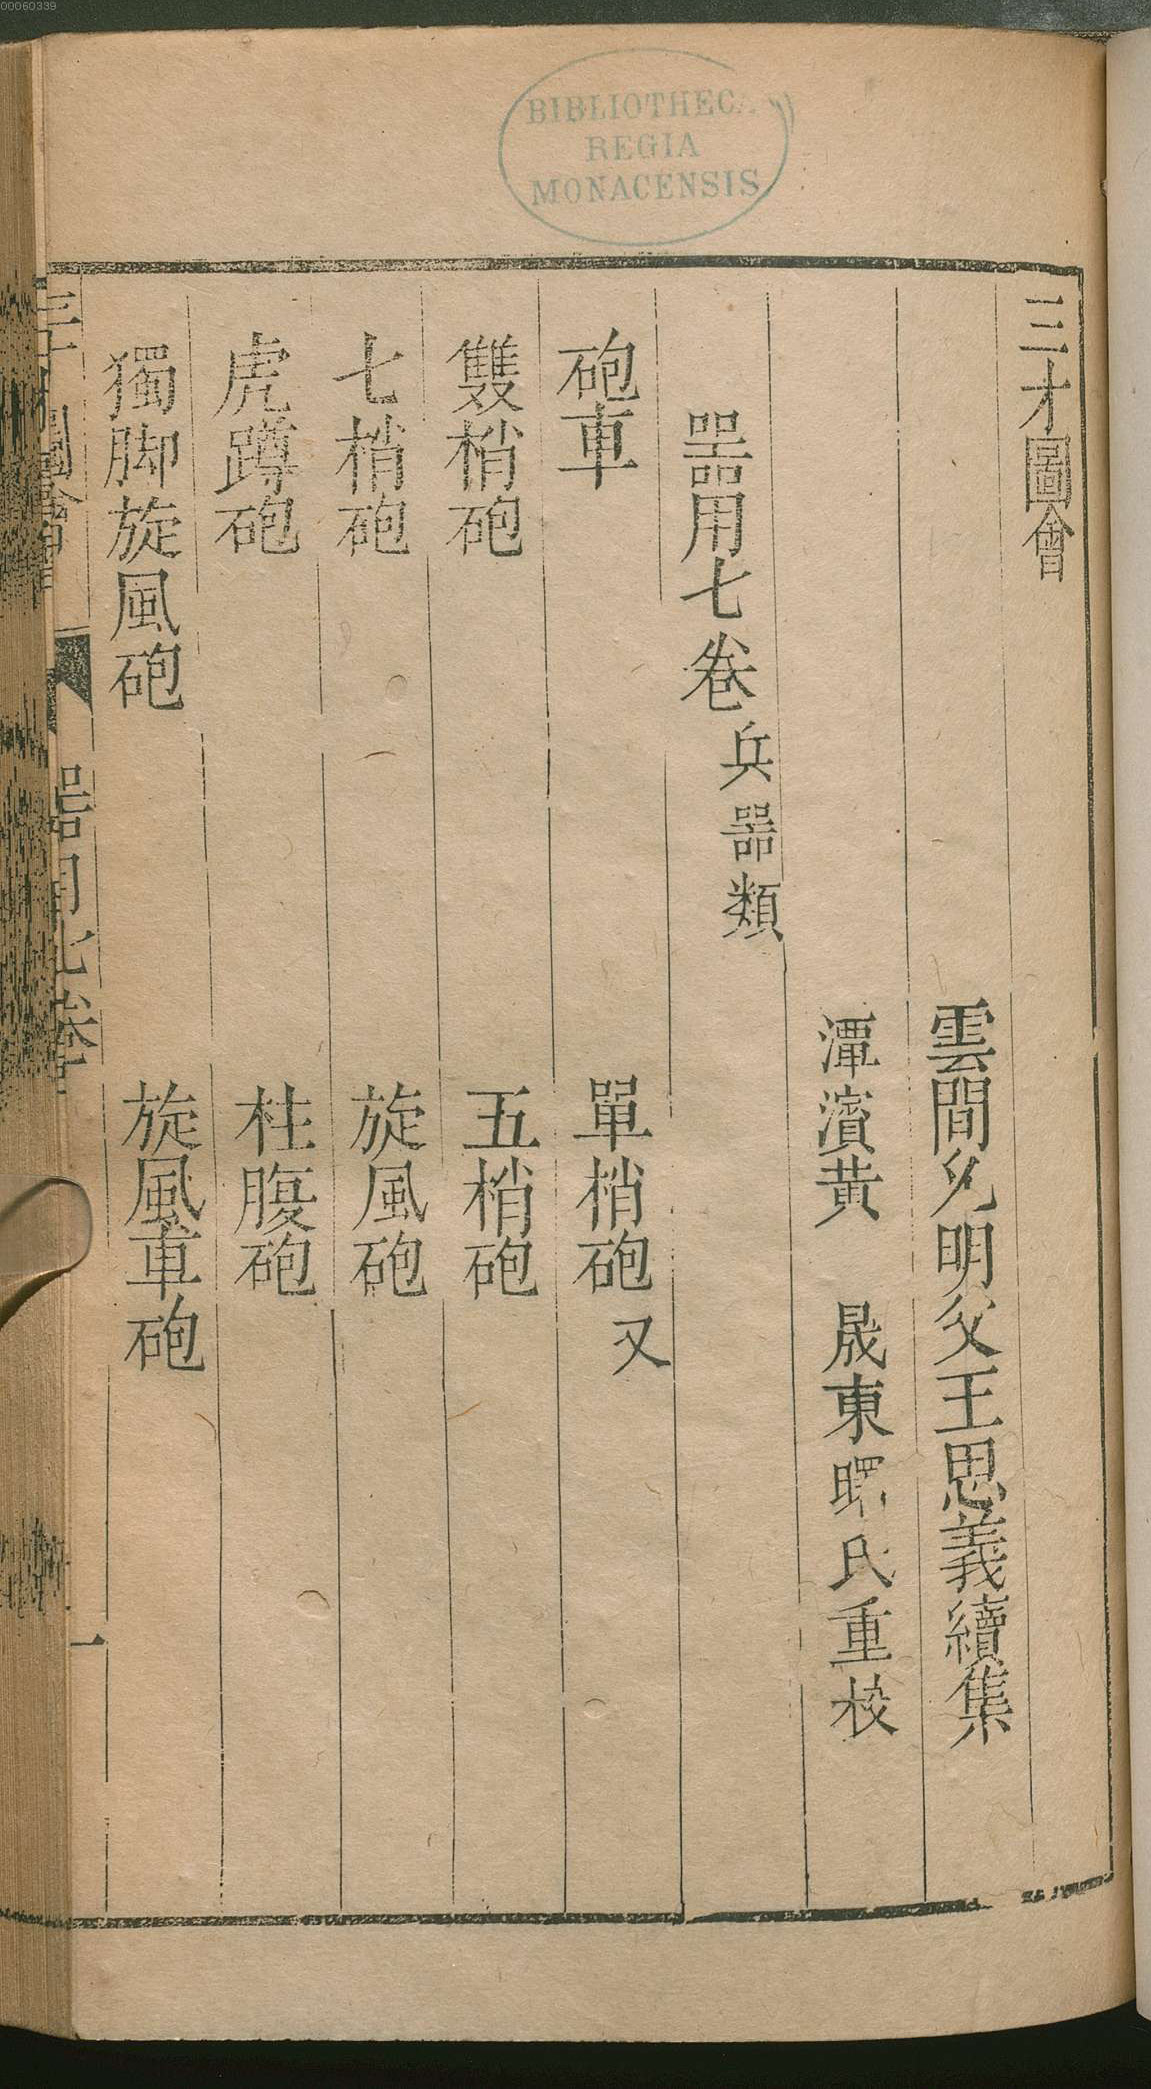 00060339
BIBLIOTHECA
REGIA
MONACENSIS
三才圖會
雲間允明父王思義續集
潭濱黃 晟東曙氏重校
器用七卷 兵器類
砲車 單梢砲 又
雙梢砲 五梢砲
七梢砲 旋風砲
虎蹲砲 柱腹砲
獨脚旋風砲 旋風車砲
三才圖會 器用七卷 一